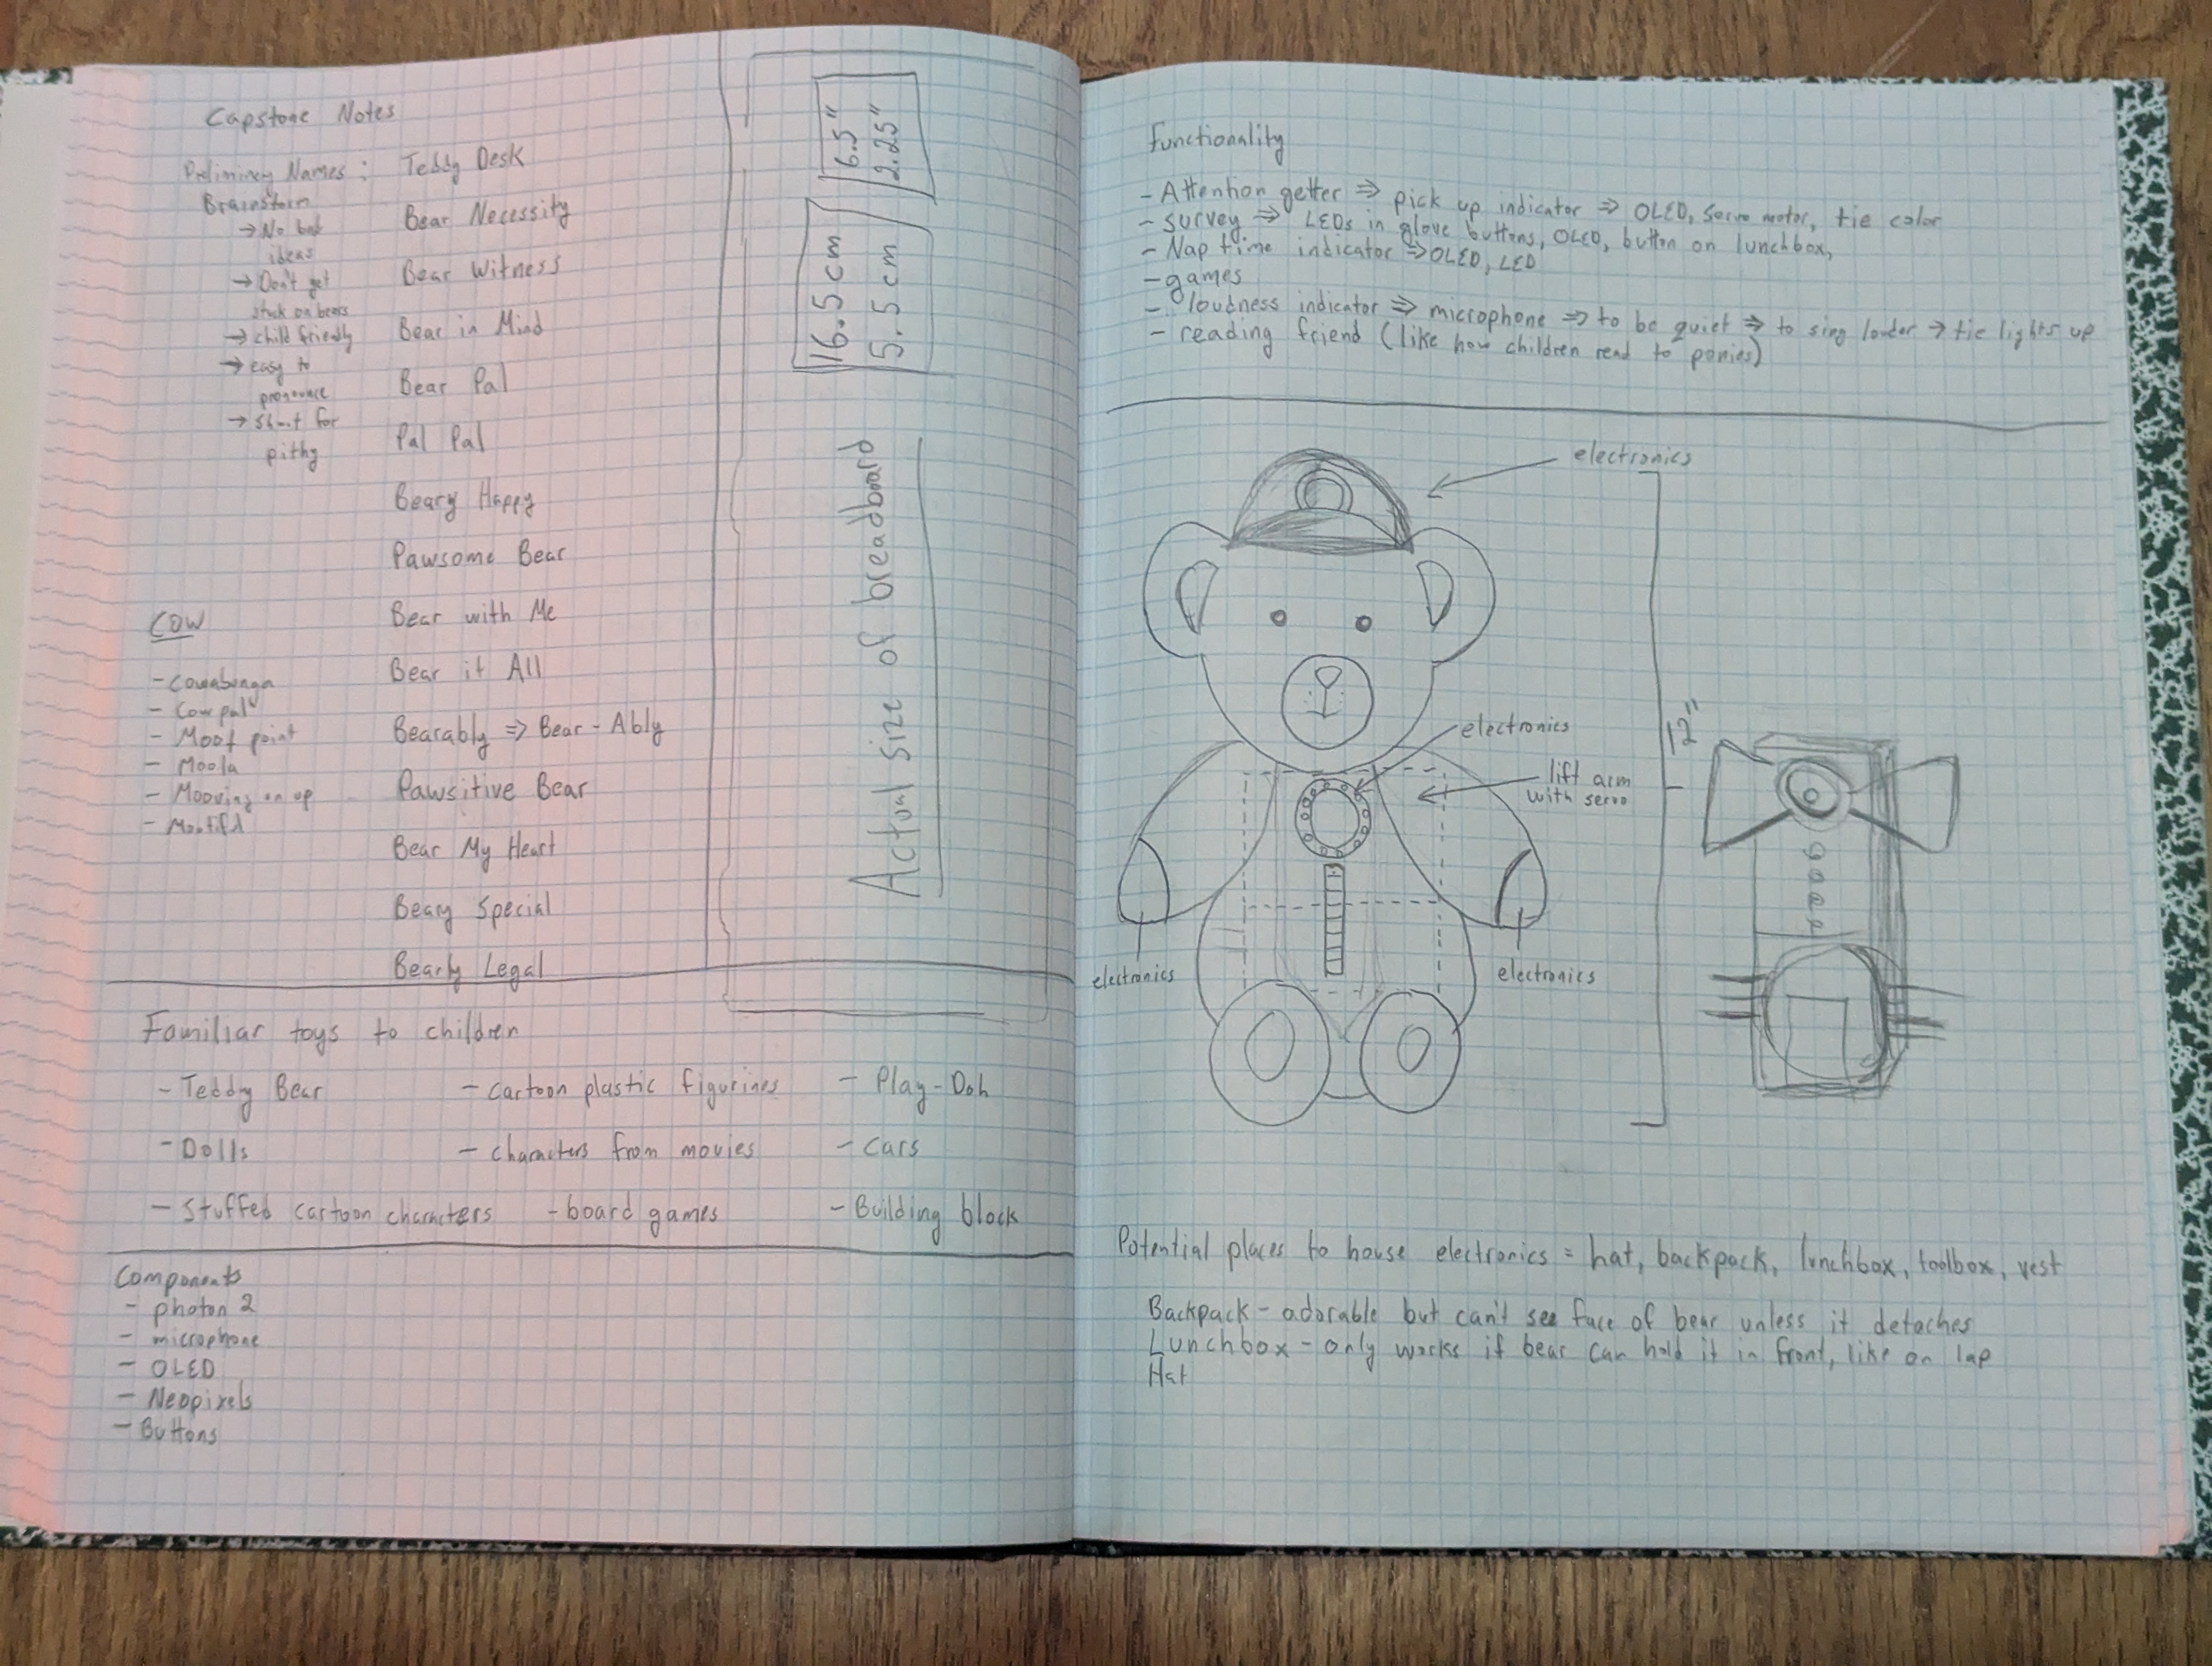 Capstone Notes
Preliminary Names : Teddy Desk
Brainstorm
→ No bad
ideas
→ Don't get
stuck on bears
→ child friendly
→ easy to
pronounce
→ Short for
pithy
Bear Necessity
Bear Witness
Bear in Mind
Bear Pal
Pal Pal
Beary Happy
Pawsome Bear
Bear with Me
Bear it All
Bearably ⇒ Bear-Ably
Pawsitive Bear
Bear My Heart
Beary Special
Bearly Legal
COW
- Cowabunga
- Cow pal
- Moot point
- Moola
- Mooving on up
16.5 cm
5.5 cm
6.5"
2.25"
Actual size of breadboard
Familiar toys to children
- Teddy Bear - cartoon plastic figurines - Play-Doh
- Dolls - characters from movies - Cars
- Stuffed cartoon characters - board games - Building block
Components
- photon 2
- microphone
- OLED
- Neopixels
- Buttons
Functionality
- Attention getter ⇒ pick up indicator ⇒ OLED, servo motor, tie color
- survey ⇒ LEDs in glove buttons, OLED, button on lunchbox,
- Nap time indicator ⇒ OLED, LED
- games
- loudness indicator ⇒ microphone ⇒ to be quiet ⇒ to sing louder → tie lights up
- reading friend (like how children read to ponies)
electronics
electronics
lift arm
with servo
12"
electronics
electronics
Potential places to house electronics = hat, backpack, lunchbox, toolbox, vest
Backpack - adorable but can't see face of bear unless it detaches
Lunchbox - only works if bear can hold it in front, like on lap
Hat